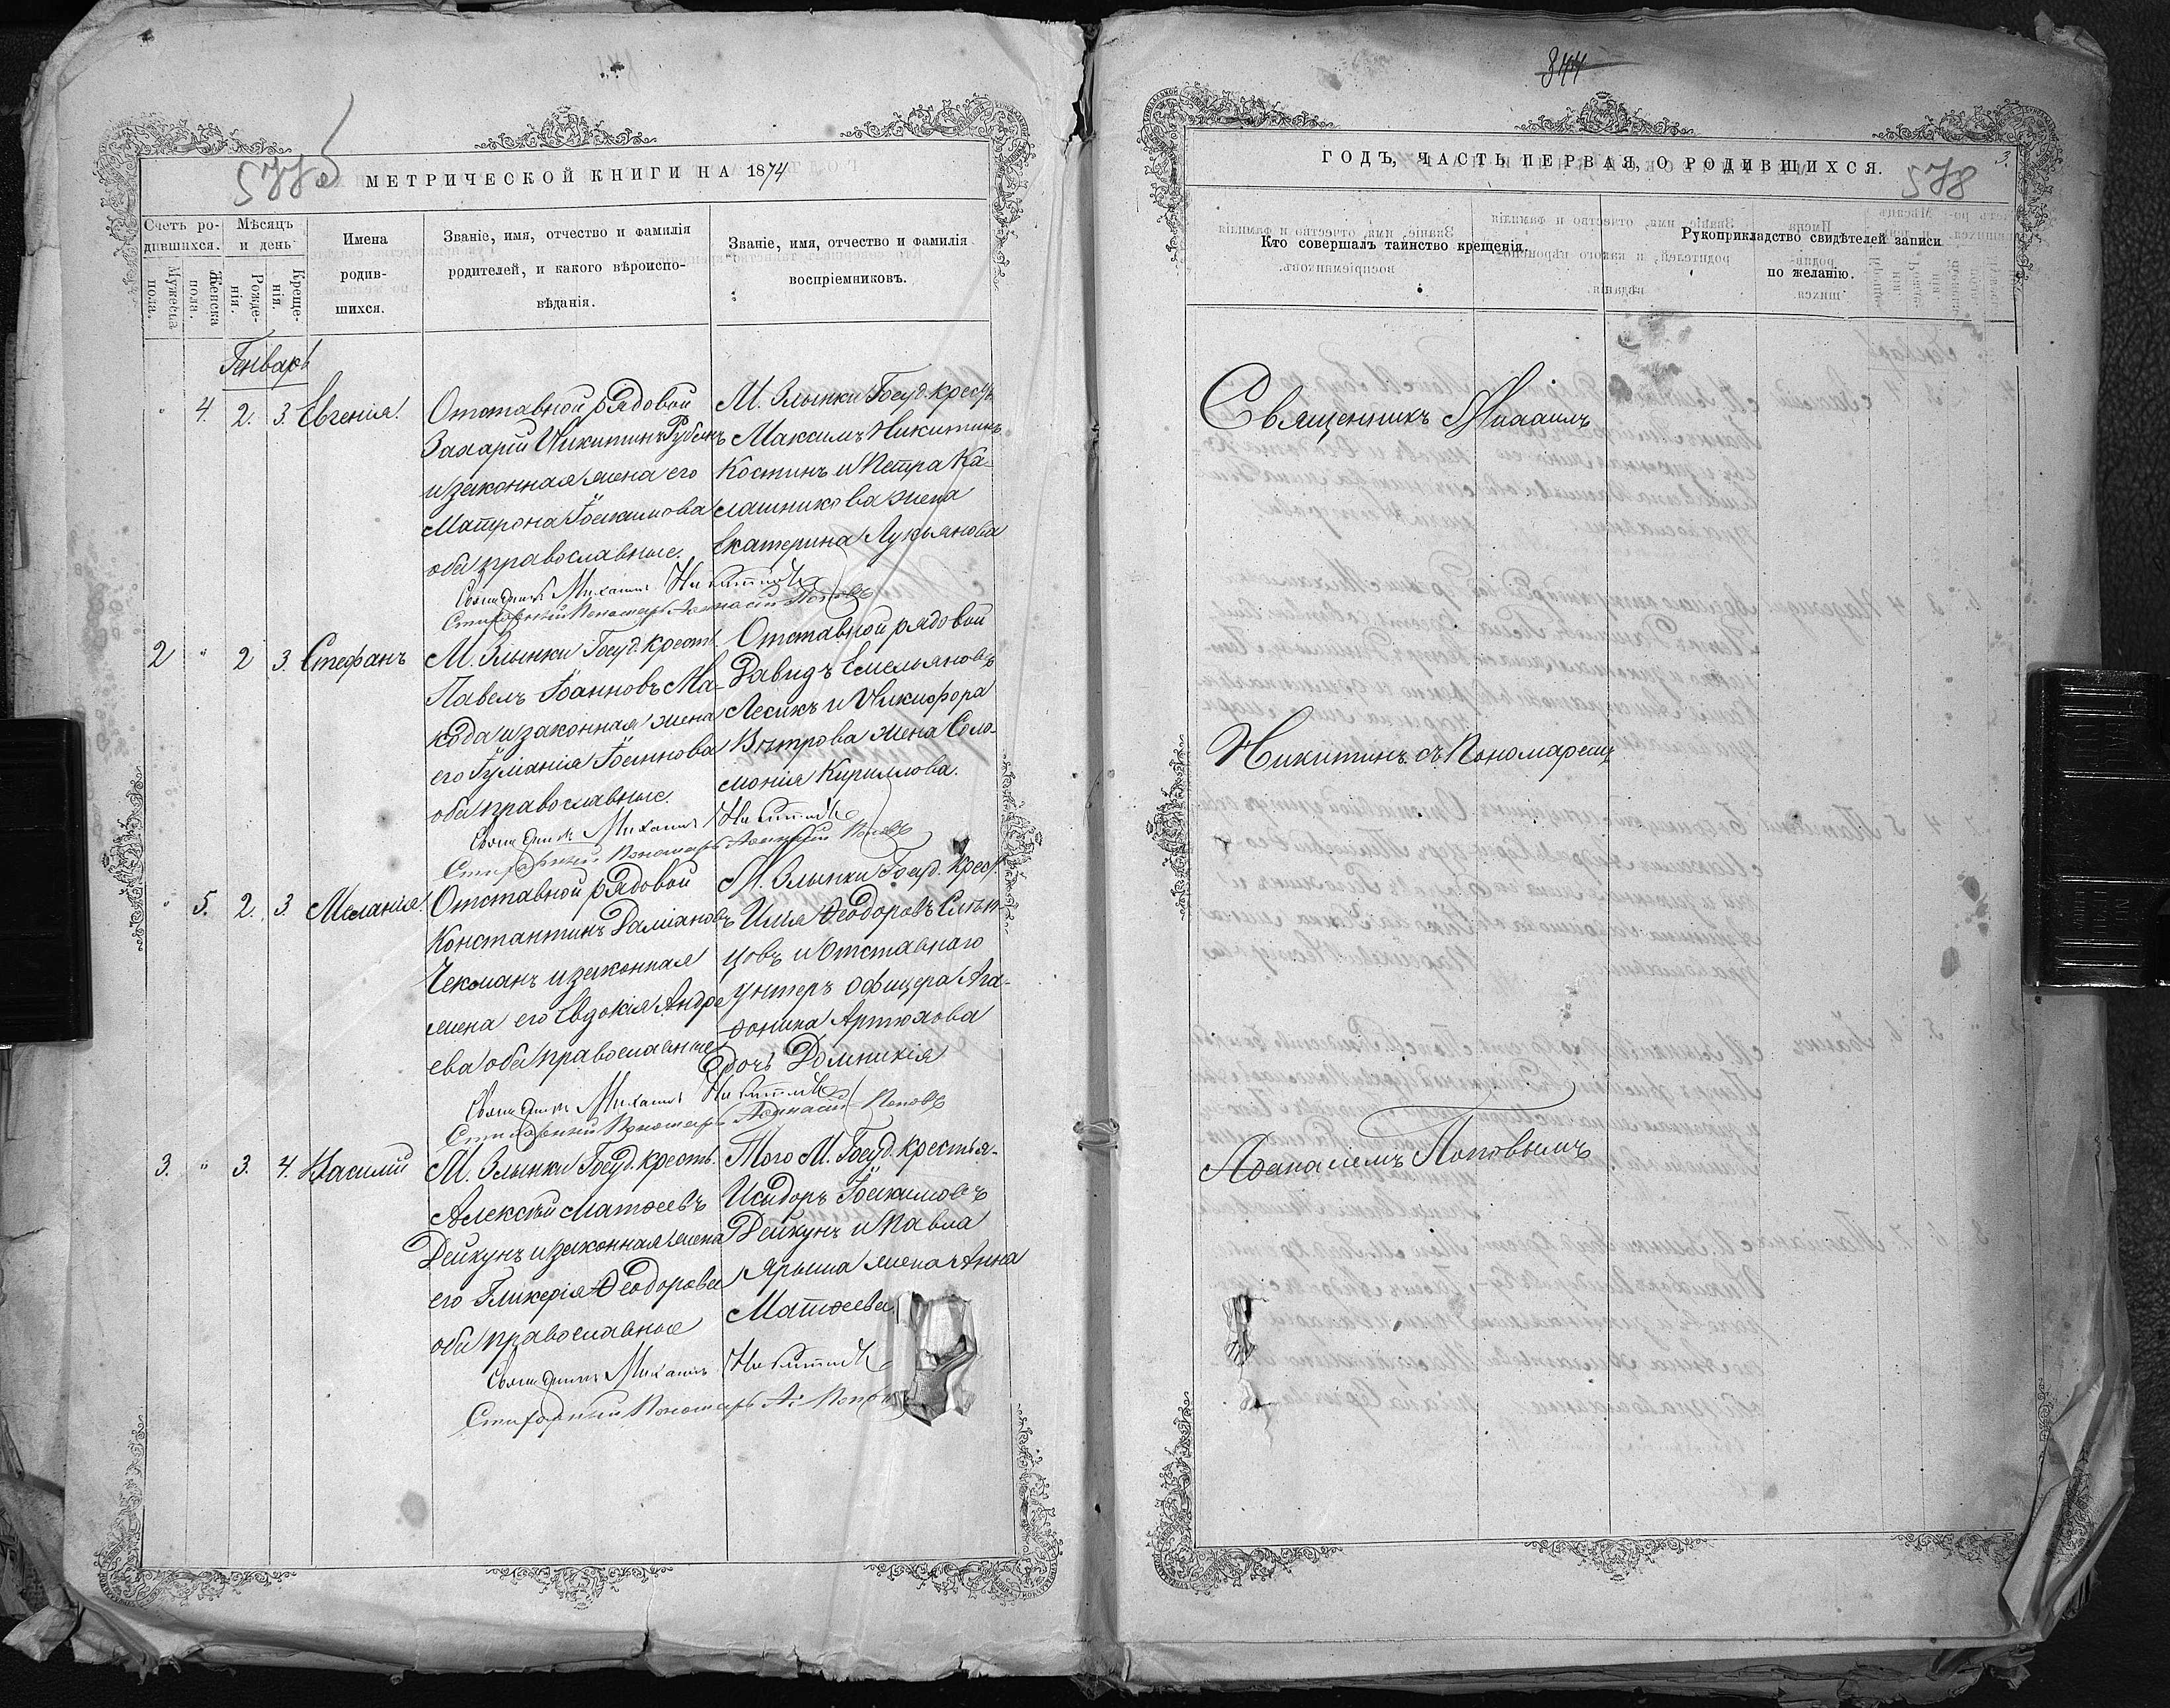 577 об
МЕТРИЧЕСКОЙ КНИГИ НА 1874
Счетъ ро-
дившихся.
Мужеска
пола.
Женска
пола.
Мѣсяцъ
и день
Рожде-
нія.
Креще-
нія.
Имена
родив-
шихся.
Званіе, имя, отчество и фамилія
родителей, и какого вѣроиспо-
вѣданія.
Званіе, имя, отчество и фамилія
воспріемниковъ.
Генварь
" 4. 2. 3. Евгенія.
Отставной рядовой
Захарій Никитинъ
и законная жена его
Матрона Іоакимова
оба православные.
М. Злынки Госуд. крест.
Максимъ Никитинъ
Костинъ и Петра Ка-
лашникова жена
Екатерина Лукьянова
Священникъ Михаилъ Никитинъ
Стихарный Пономарь Аѳанасій Поповъ
2 " 2 3. Стефанъ
М. Злынки Госуд. крест.
Павелъ Іоанновъ Ма-
кода и законная жена
его Іуліанія Іоаннова
оба православные.
Отставной рядовой
Давидъ Емельяновъ
Лесикъ и Никифора
Вѣтрова жена Соло-
монія Кириллова.
Священникъ Михаилъ Никитинъ
Стихарный Пономарь Аѳанасій Поповъ
" 5. 2. 3. Меланія.
Отставной рядовой
Константинъ Даміановъ
Чекманъ и законная
жена его Евдокія Андре
ева оба православные
М. Злынки Госуд. Крест.
Илія Ѳеодоровъ Слѣп-
цовъ и Отставнаго
унтеръ офицера Ага-
фоника Артюхова
дочь Домникія
Священникъ Михаилъ Никитинъ
Стихарный Пономарь Аѳанасій Поповъ
3. " 3. 4. Василій
М. Злынки Госуд. крестъ.
Алексѣй Матѳеевъ
Дейкунъ и законная жена
его Гликерія Ѳеодорова
оба православные
Того М. Госуд. крестья-
Исидоръ Іоакимовъ
Дейкунъ и Павла
Ярыша жена Анна
Матѳеева.
Священникъ Михаилъ Никитинъ
Стихарный Пономарь А. Поповъ
844
ГОДЪ, ЧАСТЬ ПЕРВАЯ, О РОДИВШИХСЯ.
578
3.
Кто совершалъ таинство крещенія.
Рукоприкладство свидѣтелей записи
по желанію.
Священникъ Михаилъ
Никитинъ съ Пономаремъ
Аѳанасіемъ Поповымъ